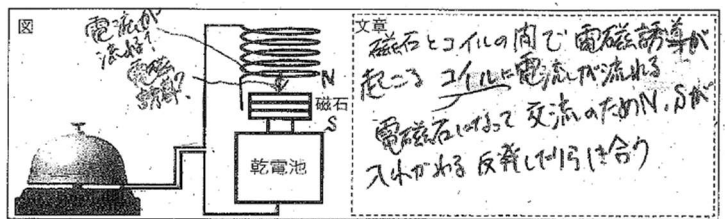 図
電流が
流れる?
電磁
誘導?
N
磁石
S
乾電池
文章
磁石とコイルの間で電磁誘導が
起こる コイルに電流が流れる
電磁石になって交流のためN、Sが
入れかわる 反発したり引き合う